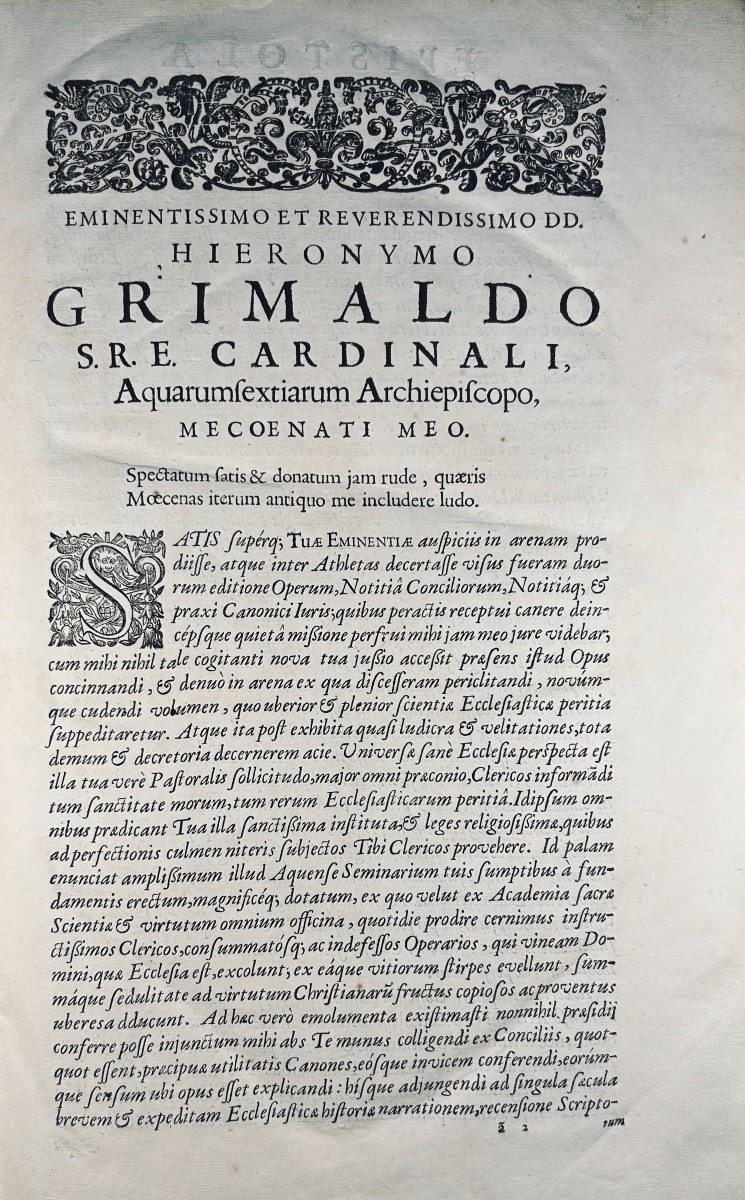 EMINENTISSIMO ET REVERENDISSIMO DD.
HIERONYMO
GRIMALDO
S. R. E. CARDINALI,
Aquarumſextiarum Archiepiſcopo,
MECOENATI MEO.
Spectatum ſatis & donatum jam rude, quæris
Mœcenas iterum antiquo me includere ludo.
SATIS ſupérq; TUÆ EMINENTIÆ auſpiciis in arenam pro-
diiſſe, atque inter Athletas decertaſſe viſus fueram duo-
rum editione Operum, Notitiâ Conciliorum, Notitiáq; &
praxi Canonici Iuris; quibus peractis receptui canere dein-
cépſque quietâ miſſione perfrui mihi jam meo jure videbar;
cum mihi nihil tale cogitanti nova tua juſſio acceſſit præſens iſtud Opus
concinnandi, & denuò in arena ex qua diſceſſeram periclitandi, novúm-
que cudendi volumen, quo uberior & plenior ſcientiæ Eccleſiaſticæ peritia
ſuppeditaretur. Atque ita poſt exhibita quaſi ludicra & velitationes, tota
demum & decretoria decernerem acie. Univerſæ ſanè Eccleſiæ perſpecta eſt
illa tua verè Paſtoralis ſollicitudo, major omni præconio, Clericos informãdi
tum ſanctitate morum, tum rerum Eccleſiaſticarum peritiâ. Idipſum om-
nibus prædicant Tua illa ſanctiſſima inſtituta, & leges religioſiſſimæ, quibus
ad perfectionis culmen niteris ſubjectos Tibi Clericos provehere. Id palam
enunciat ampliſſimum illud Aquenſe Seminarium tuis ſumptibus à fun-
damentis erectum, magnificéq; dotatum, ex quo velut ex Academia ſacræ
Scientiæ & virtutum omnium officina, quotidie prodire cernimus inſtru-
ctiſſimos Clericos, conſummatóſq; ac indefeſſos Operarios, qui vineam Do-
mini, quæ Eccleſia eſt, excolunt; ex eáque vitiorum ſtirpes evellunt, ſum-
máque ſedulitate ad virtutum Chriſtianarũ fructus copioſos ac proventus
uberes adducunt. Ad hæc verò emolumenta exiſtimaſti nonnihil præſidij
conferre poſſe injunctum mihi abs Te munus colligendi ex Conciliis, quot-
quot eſſent, præcipuæ utilitatis Canones, eóſque invicem conferendi, eorúm-
que ſenſum ubi opus eſſet explicandi: híſque adjungendi ad ſingula ſæcula
brevem & expeditam Eccleſiaſticæ hiſtoriæ narrationem, recenſione Scripto-
ã 2 rum